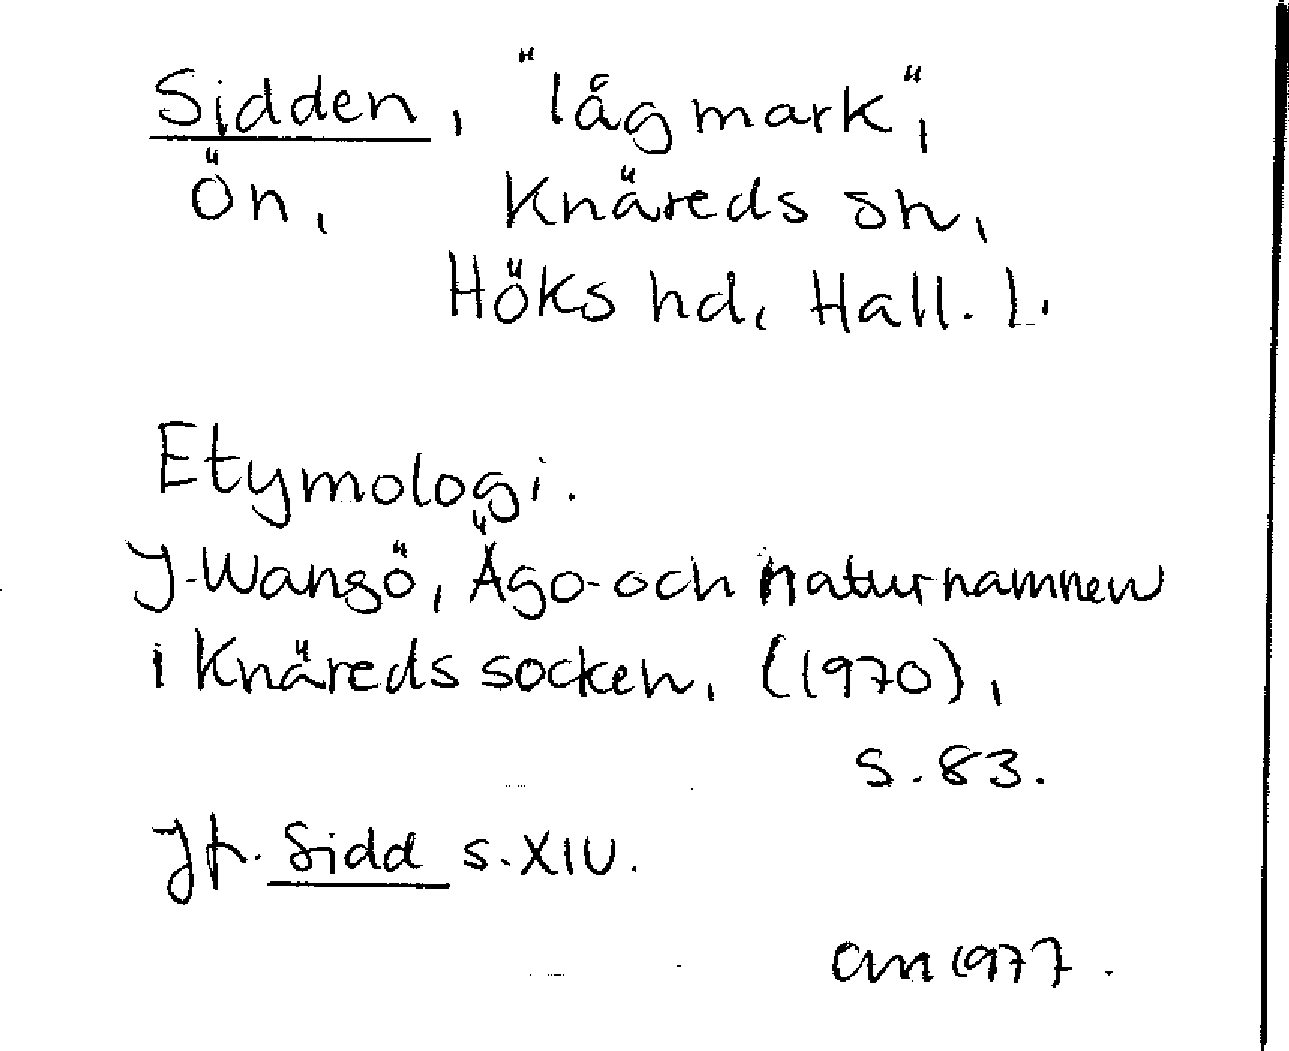 Sidden, "låg mark",
Ön, Knäreds sn,
Höks hd, Hall. l.
Etymologi.
J-Wangö, Ägo- och naturnamnen
i Knäreds socken, (1970),
s. 83.
Jfr. Sidd s. XIV.
am 1977.